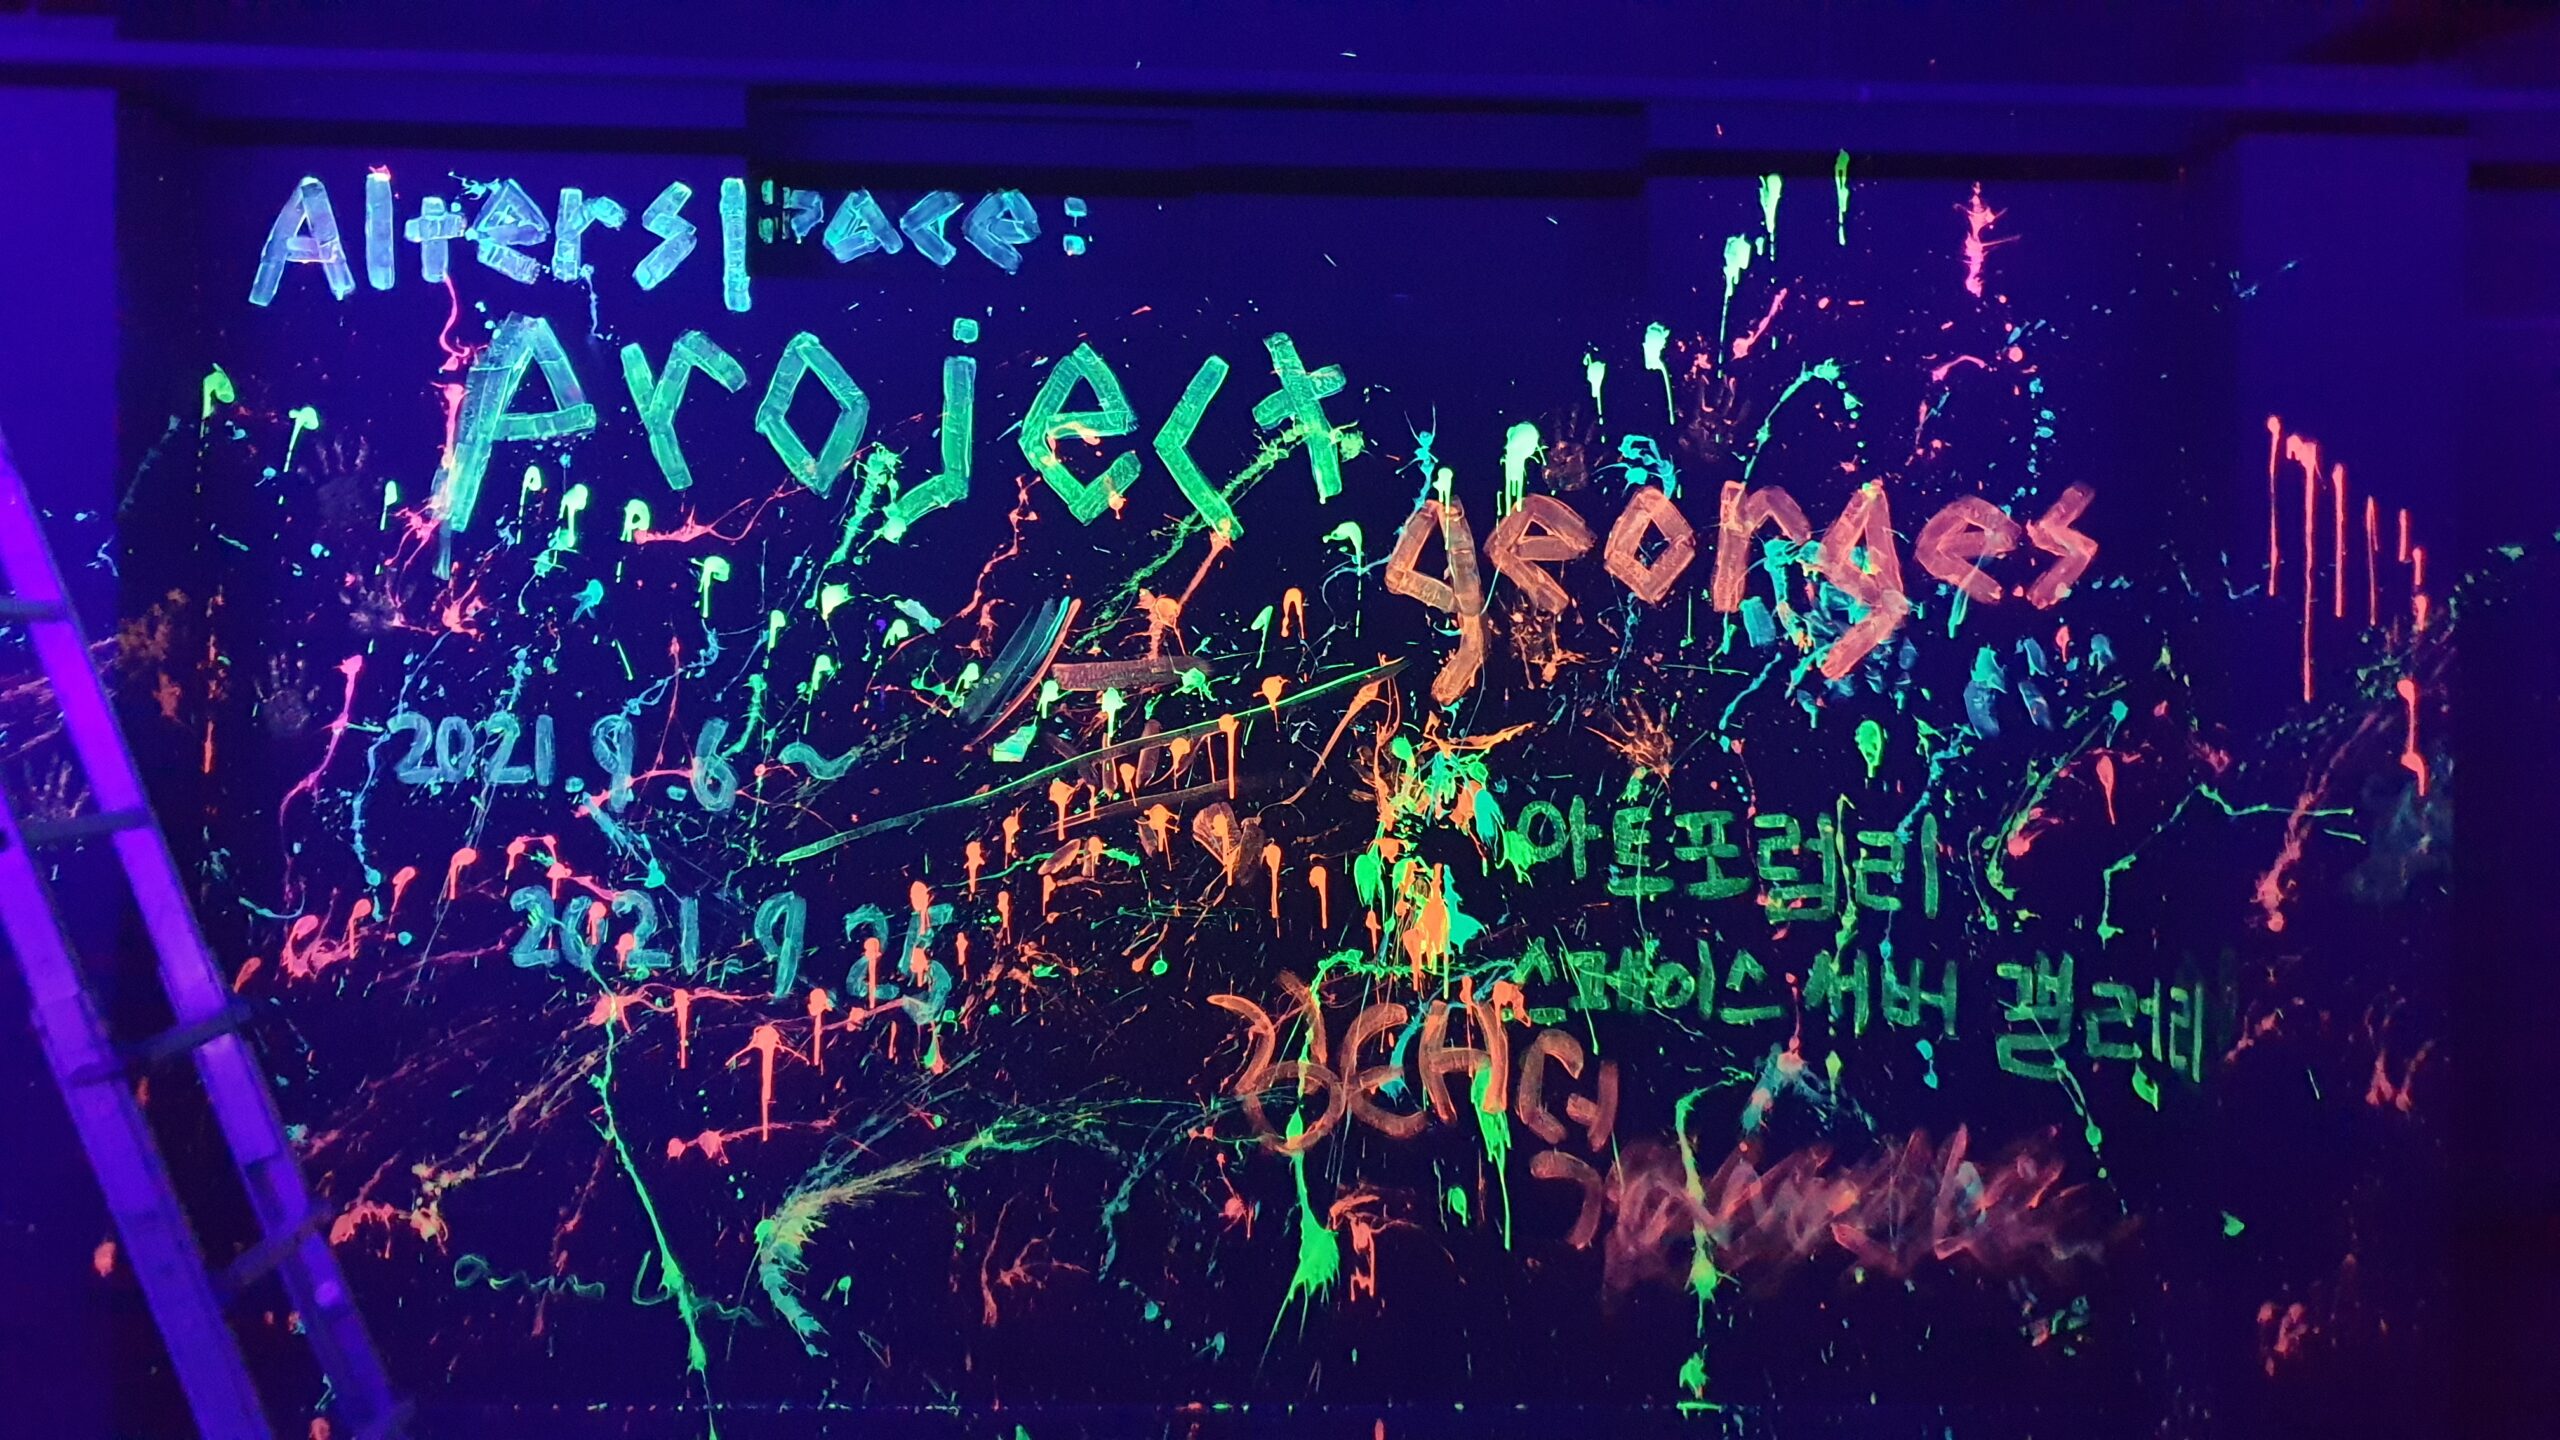 Alterspace:
Project
georges
2021.9.6~
2021.9.25
아트포럼리
스페이스 써버 갤러리